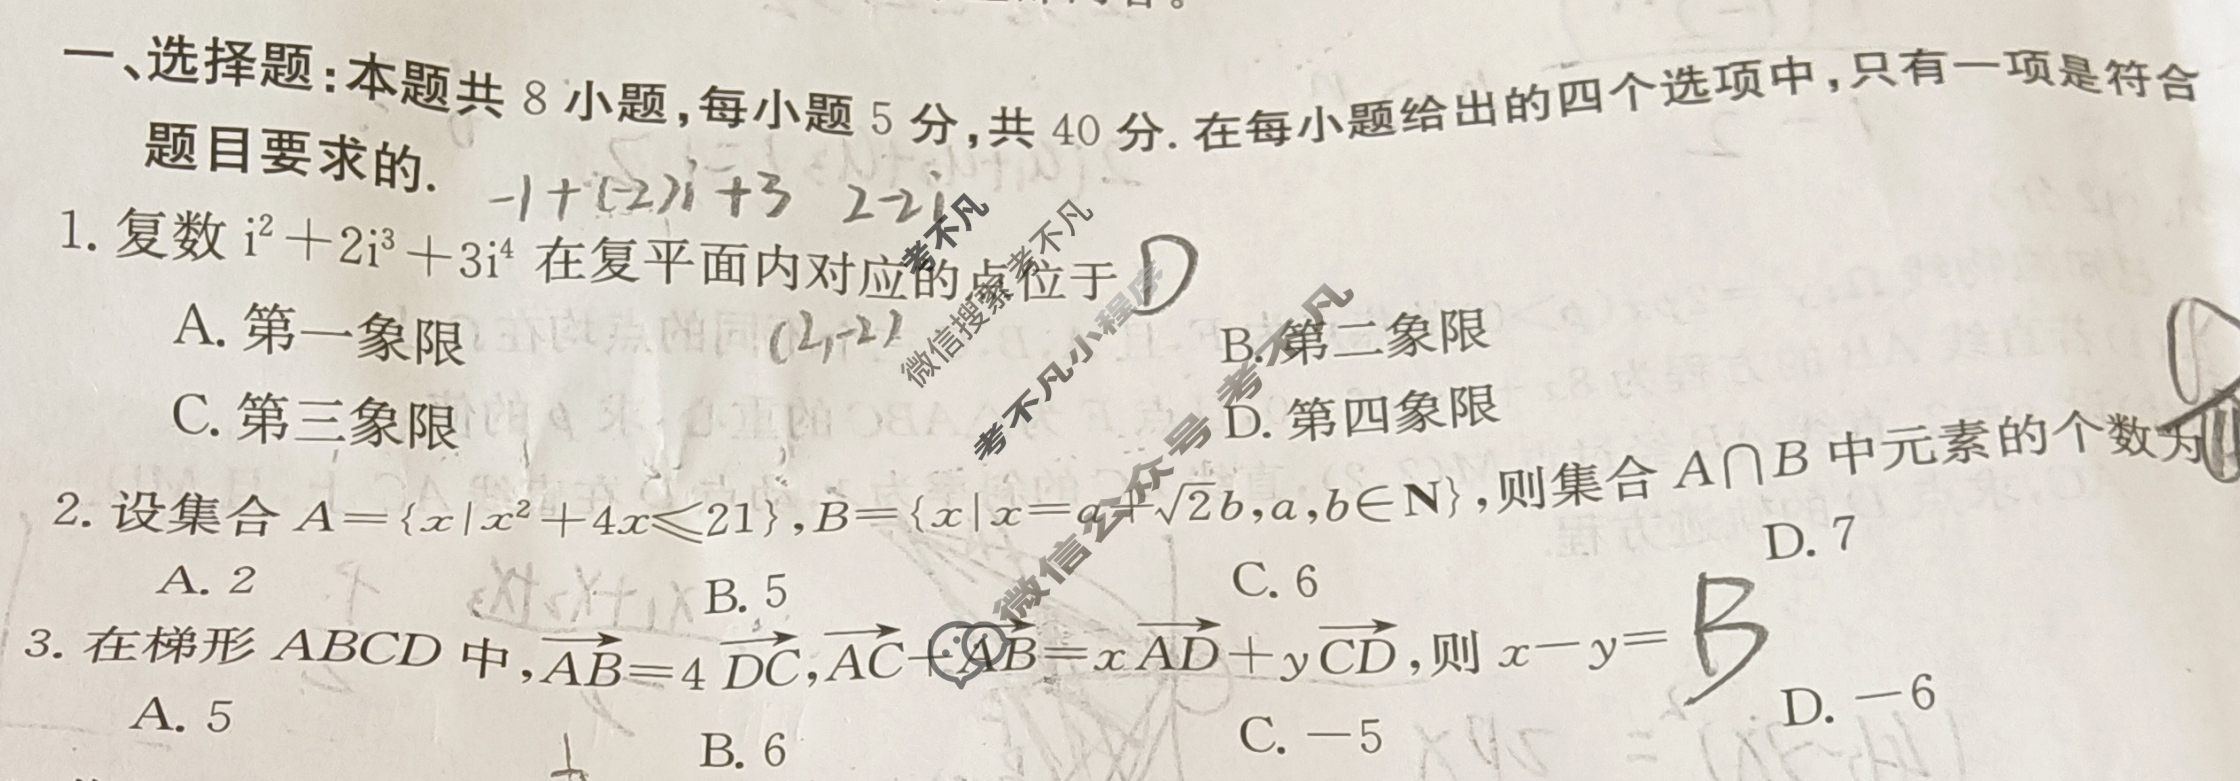 一、选择题:本题共 8 小题,每小题 5 分,共 40 分. 在每小题给出的四个选项中,只有一项是符合
题目要求的.
-1+(-2)i+3 2-2i
1. 复数 i²+2i³+3i⁴ 在复平面内对应的点位于 D
A. 第一象限
(2,-2)
B. 第二象限
C. 第三象限
D. 第四象限
2. 设集合 A={x|x²+4x⩽21},B={x|x=a+√2b,a,b∈N},则集合 A∩B 中元素的个数为
A. 2
B. 5
C. 6
D. 7
3. 在梯形 ABCD 中,AB=4DC,AC+AB=xAD+yCD,则 x-y= B
A. 5
B. 6
C. -5
D. -6
考不凡
微信搜索 考不凡
考不凡小程序
微信公众号 考不凡